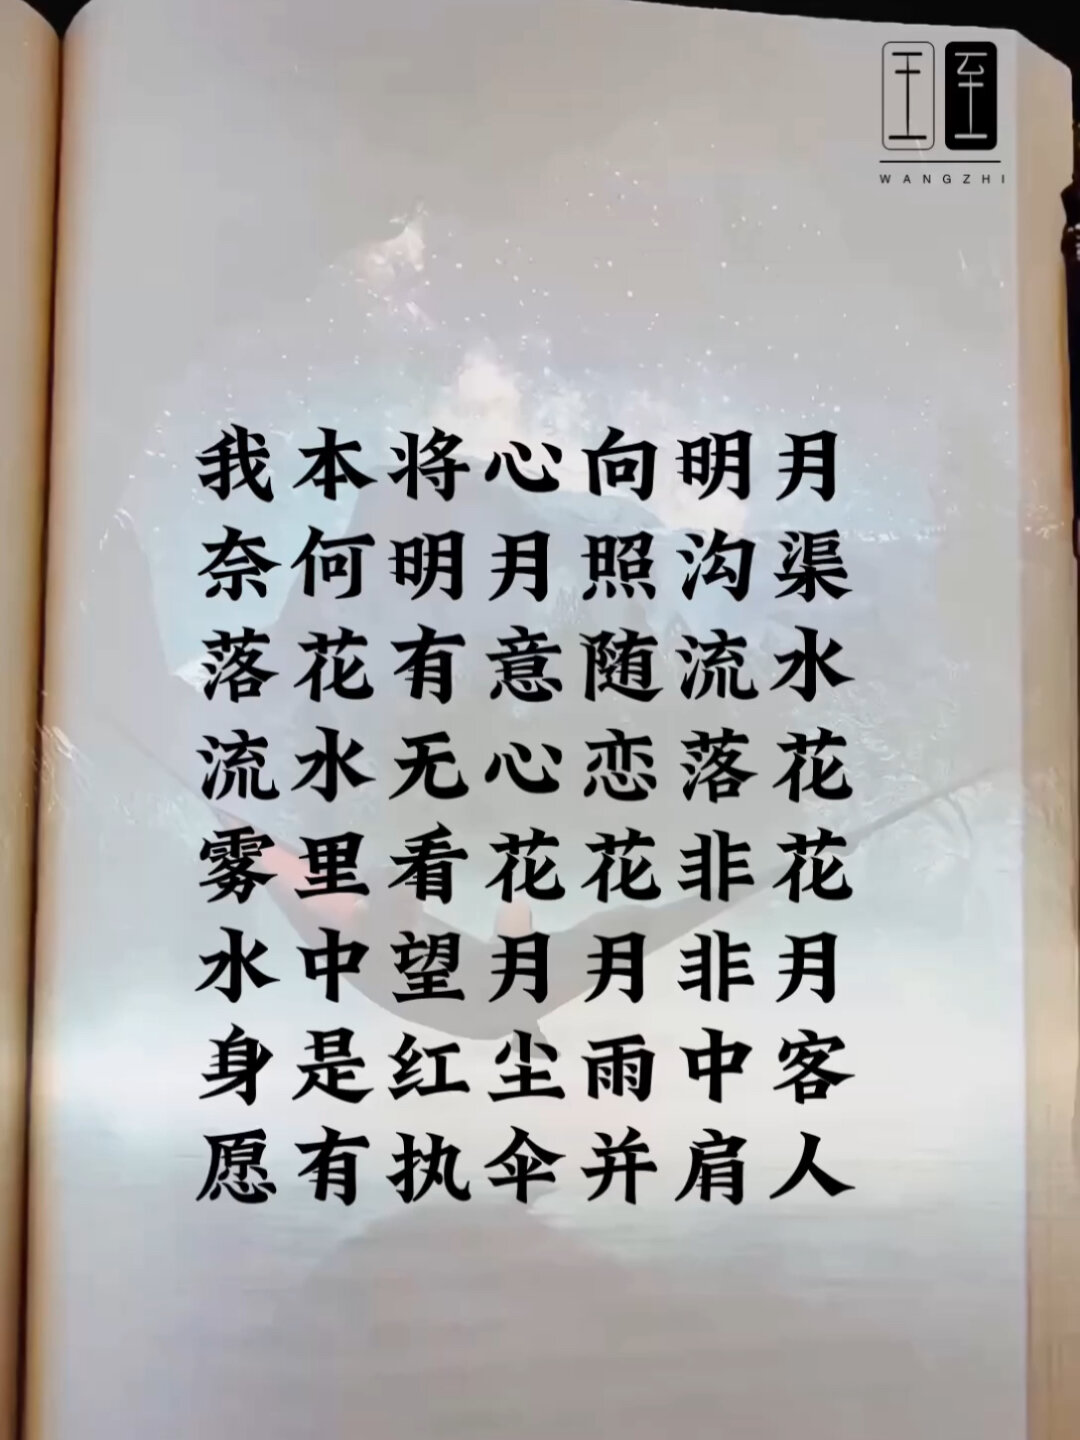 王至
WANGZHI
我本将心向明月
奈何明月照沟渠
落花有意随流水
流水无心恋落花
雾里看花花非花
水中望月月非月
身是红尘雨中客
愿有执伞并肩人